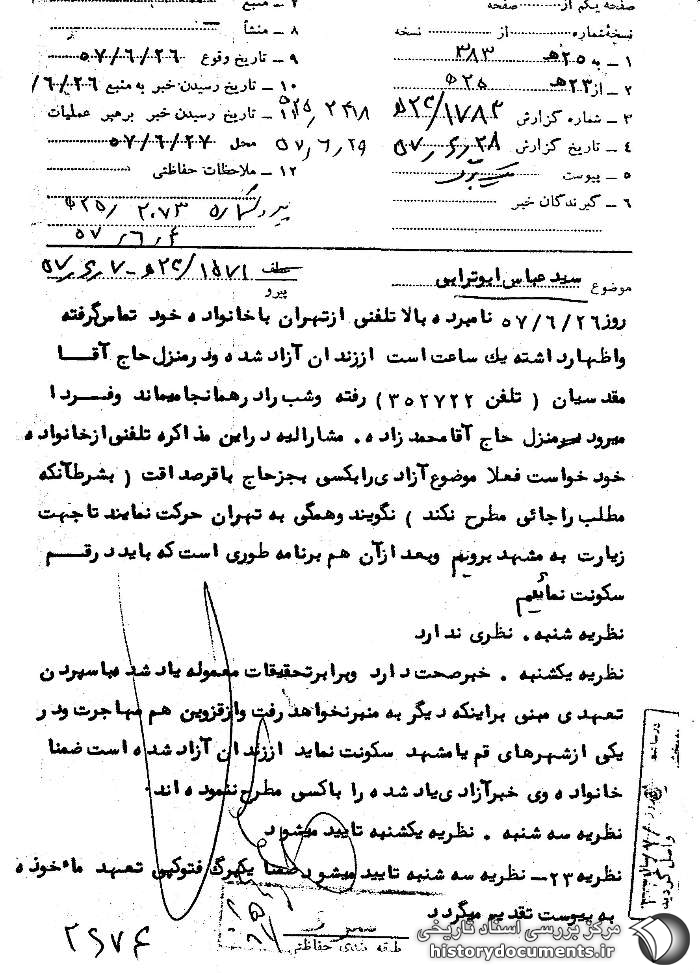 صفحه یکم از ........ صفحه
نسخهٔ شماره ........ از ........ نسخه
۱ – به ۲۵ هـ ۳۸۳
۲ – از ۲۳ هـ
۳ – شماره گزارش
۴ – تاریخ گزارش
۵ – پیوست
۶ – گیرندگان خبر
۷ – منبع
۸ – منشأ
۹ – تاریخ وقوع ۵۷/۶/۲۶
۱۰ – تاریخ رسیدن خبر به منبع ۵۷/۶/۲۶
۱۱ – تاریخ رسیدن خبر برهبر عملیات
محل ۵۷/۶/۲۷
۱۲ – ملاحظات حفاظتی
۵۷/۶/۲۹
موضوع سید عباس ابوترابی
عطف
پیرو
روز ۵۷/۶/۲۶ نامبرده بالا تلفنی از تهران با خانواده خود تماس گرفته
و اظهار داشته یک ساعت است از زندان آزاد شده و در منزل حاج آقا
مقدسیان ( تلفن ۳۵۲۷۲۲ ) رفته و شب را در همانجا میماند و فردا
میرود منزل حاج آقا محمد زاده . مشارالیه در این مذاکره تلفنی از خانواده
خود خواست فعلا موضوع آزادی را بکسی بجز حاج باقر صداقت ( بشرط آنکه
مطلب را جائی مطرح نکند ) نگویند و همگی به تهران حرکت نمایند تا جهت
زیارت به مشهد برویم و بعد از آن هم برنامه طوری است که باید در قم
سکونت نمائیم
نظریه شنبه . نظری ندارد
نظریه یکشنبه . خبر صحت دارد و برابر تحقیقات معموله یاد شده با سپردن
تعهدی مبنی بر اینکه دیگر به منبر نخواهد رفت و از قزوین هم مهاجرت و در
یکی از شهرهای قم یا مشهد سکونت نماید از زندان آزاد شده است ضمنا
خانواده وی خبر آزادی یاد شده را با کسی مطرح ننموده اند .
نظریه سه شنبه . نظریه یکشنبه تایید میشود
نظریه ۲۳ – نظریه سه شنبه تایید میشود ضمنا یکبرگ فتوکپی تعهد ماخوذه
به پیوست تقدیم میگردد
طبقه بندی حفاظتی
۲۶۷۴
مرکز بررسی اسناد تاریخی
historydocuments.ir